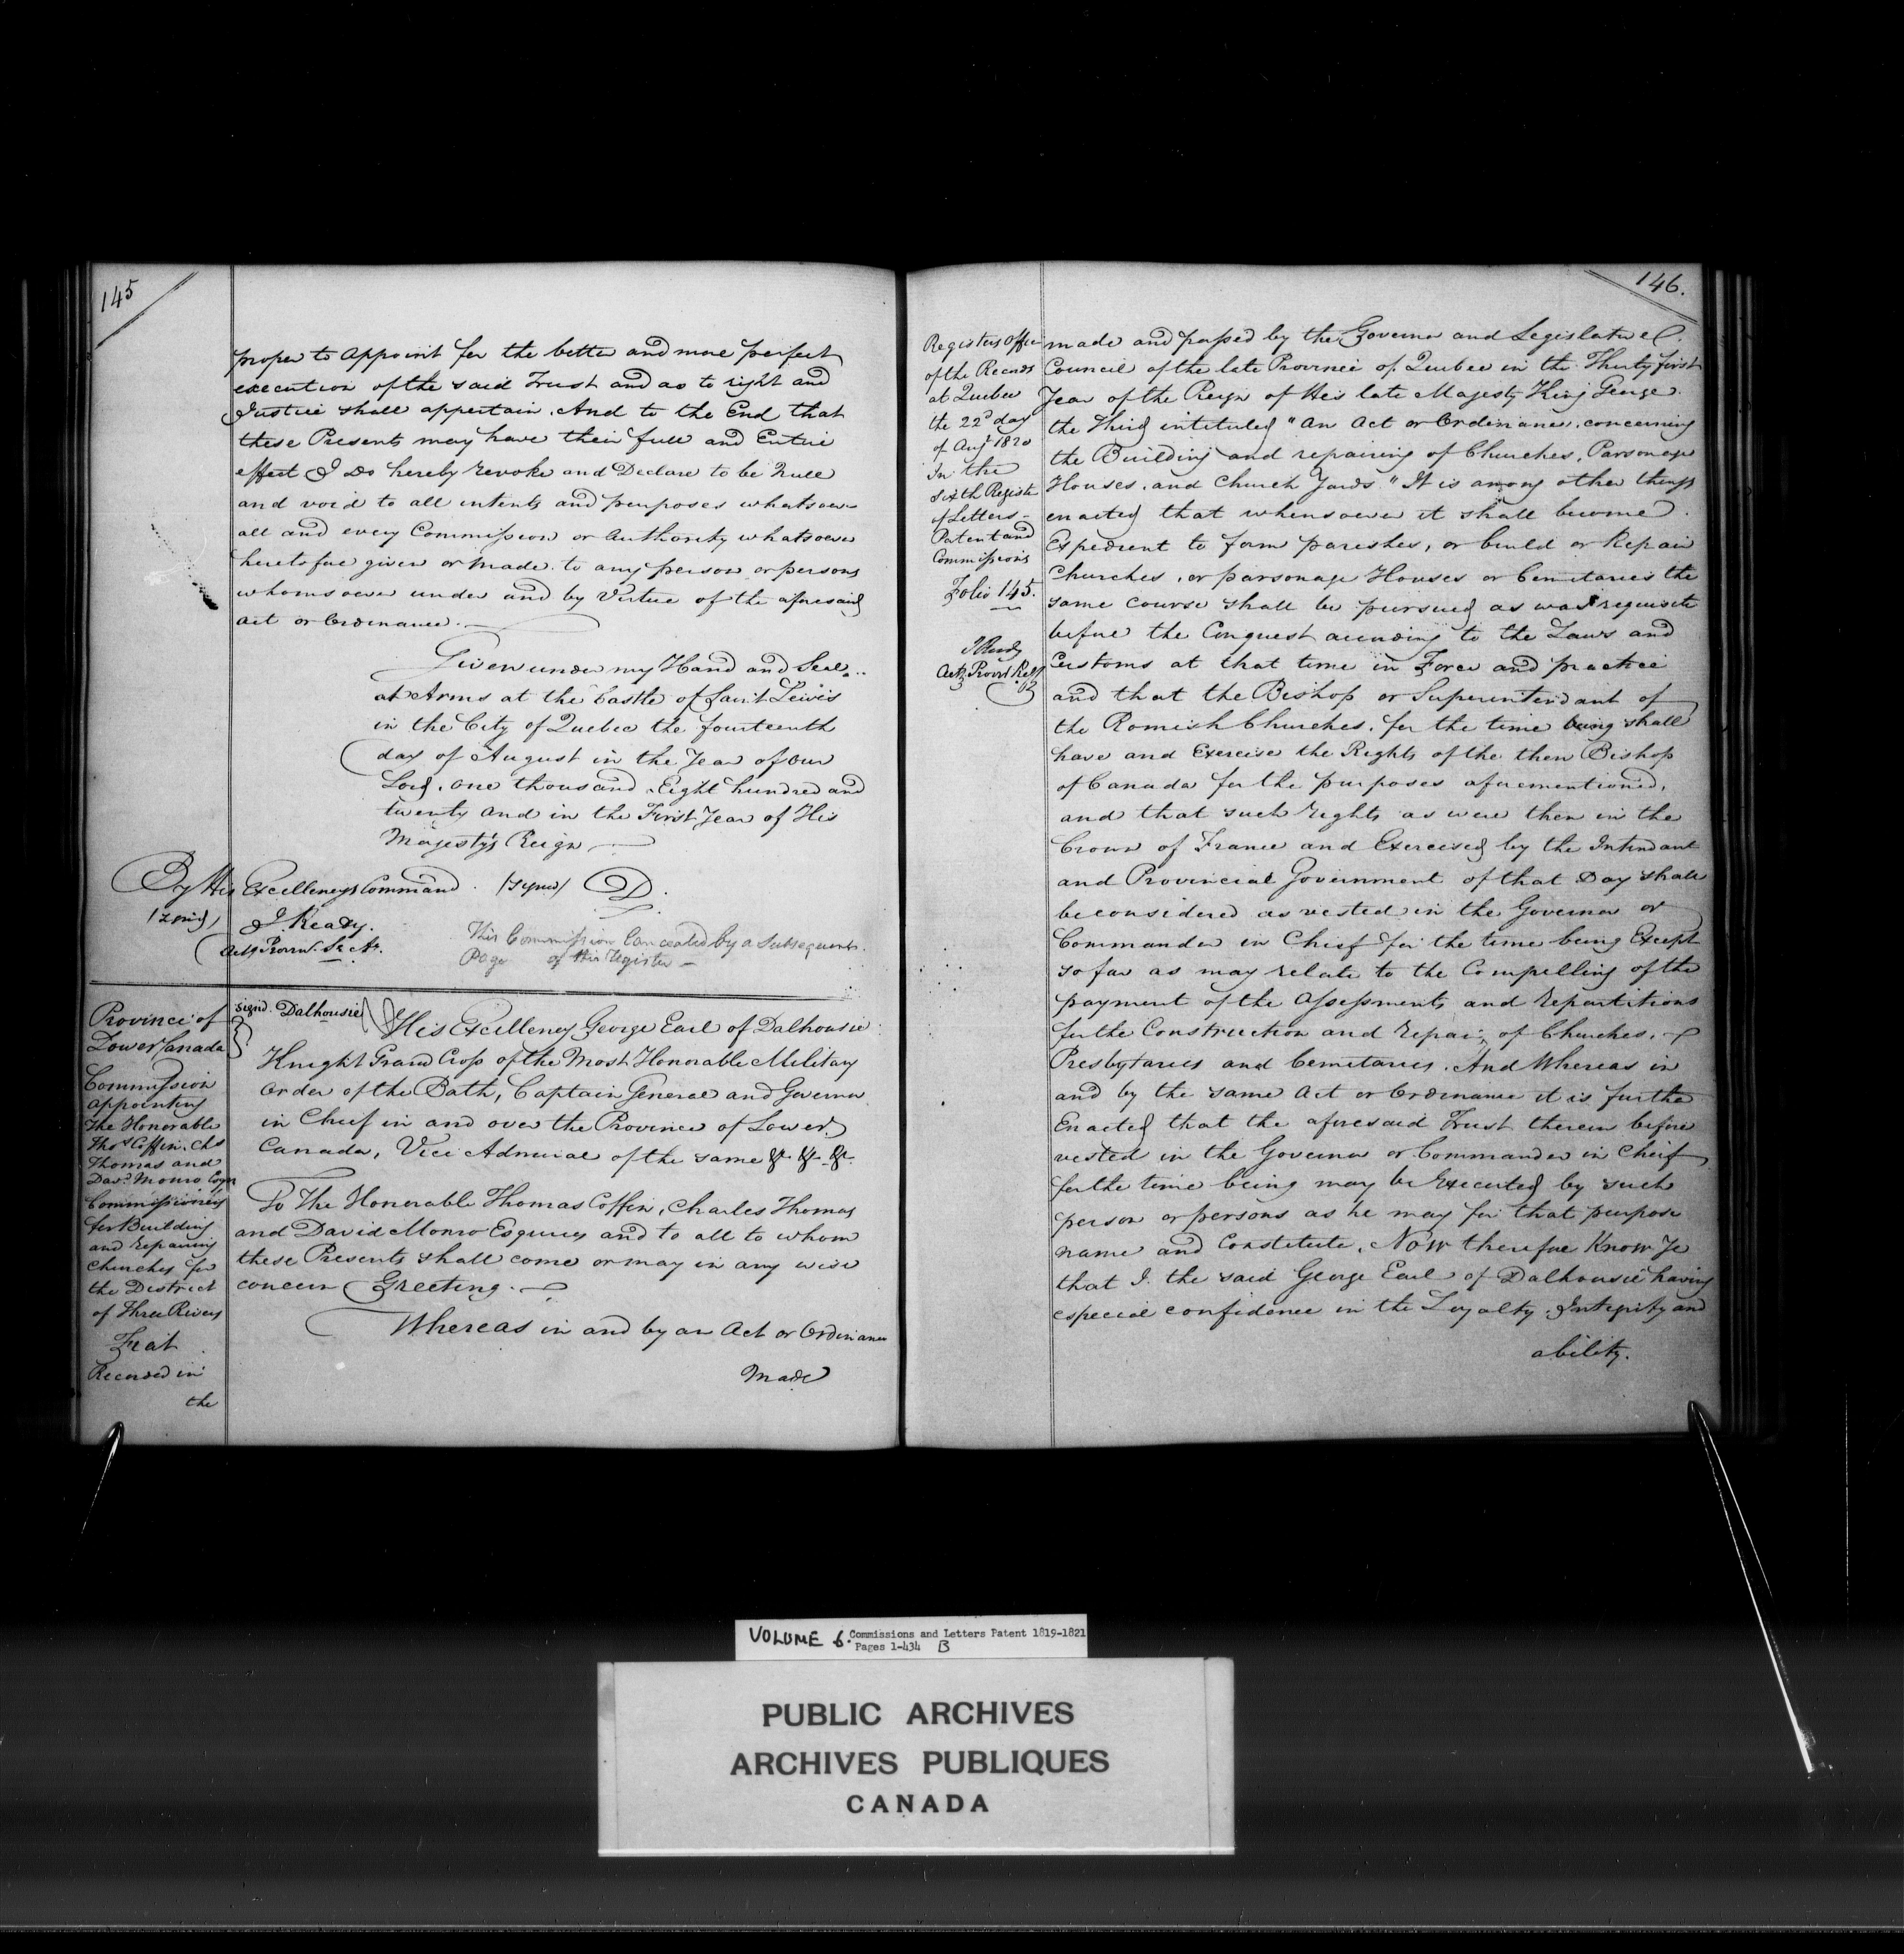 145
proper to appoint for the better and more perfect
execution of the said Trust and as to right and
Justice shall appertain. And to the End that
these Presents may have their full and Entire
effect I Do hereby revoke and Declare to be Null
and void to all intents and purposes whatsoever
all and every Commission or Authority whatsoever
heretofore given or made to any person or persons
whomsoever under and by Virtue of the aforesaid
act or Ordinance.
Given under my Hand and Seal
at Arms at the Castle of Saint Lewis
in the City of Quebec the fourteenth
day of August in the Year of Our
Lord, one thousand Eight hundred and
twenty and in the First Year of His
Majesty's Reign
By His Excellency's Command (signed) D.
(signd) J. Ready.
Actg Provinl. Secy.
This Commission Cancealed by a Subsequent
Page of this Register
Province of
Lower Canada
Commission
appointing
the Honorable
Thos Coffin, Chs
Thomas and
Davd. Monro Esqrs
Commissioners
for Building
and repairing
Churches for
the District
of Three Rivers
Fiat
Recorded in
the
signd. Dalhousie
His Excellency George Earl of Dalhousie
Knight Grand Cross of the Most Honorable Military
Order of the Bath, Captain General and Governor
in Chief in and over the Province of Lower
Canada, Vice Admiral of the same &c. &c. &c.
To The Honorable Thomas Coffin, Charles Thomas
and David Monro Esquires and to all to whom
these Presents shall come or may in any wise
concern Greeting.
Whereas in and by an Act or Ordinance
Made
146.
Registers Office
of the Records
at Quebec
the 22d day
of Augt 1820
In the
sixth Register
of Letters
Patent and
Commissions
Folio 145.
J Ready
Actg. Provl. Regr
made and passed by the Governor and Legislative
Council of the late Province of Quebec in the Thirty first
Year of the Reign of His late Majesty King George
the Third intituled "An Act or Ordinance, concerning
the Building and repairing of Churches, Parsonage
Houses, and Church Yards" It is among other things
enacted that whensoever it shall become
Expedient to form parishes, or build or Repair
Churches, or parsonage Houses or Cemitaries the
same course shall be pursued as was requisite
before the Conquest according to the Laws and
Customs at that time in Force and practice
and that the Bishop or Superintendant of
the Romish Churches, for the time being shall
have and Exercise the Rights of the then Bishop
of Canada for the purposes aforementioned,
and that such rights as were then in the
Crown of France and Exercised by the Intendant
and Provincial Government of that Day shall
be considered as vested in the Governor or
Commander in Chief for the time being Except
so far as may relate to the Compelling of the
payment of the Assessments and repartitions
for the Construction and repair of Churches,
Presbytaries and Cemitaries. And Whereas in
and by the same Act or Ordinance it is further
Enacted that the aforesaid Trust therein before
vested in the Governor or Commander in Cheif
for the time being may be Executed by such
person or persons as he may for that purpose
name and Constitute, Now therefore Know Ye
that I the said George Earl of Dalhousie having
especial confidence in the Loyalty, Integrity and
ability.
VOLUME 6. Commissions and Letters Patent 1819-1821
Pages 1-434 B
PUBLIC ARCHIVES
ARCHIVES PUBLIQUES
CANADA